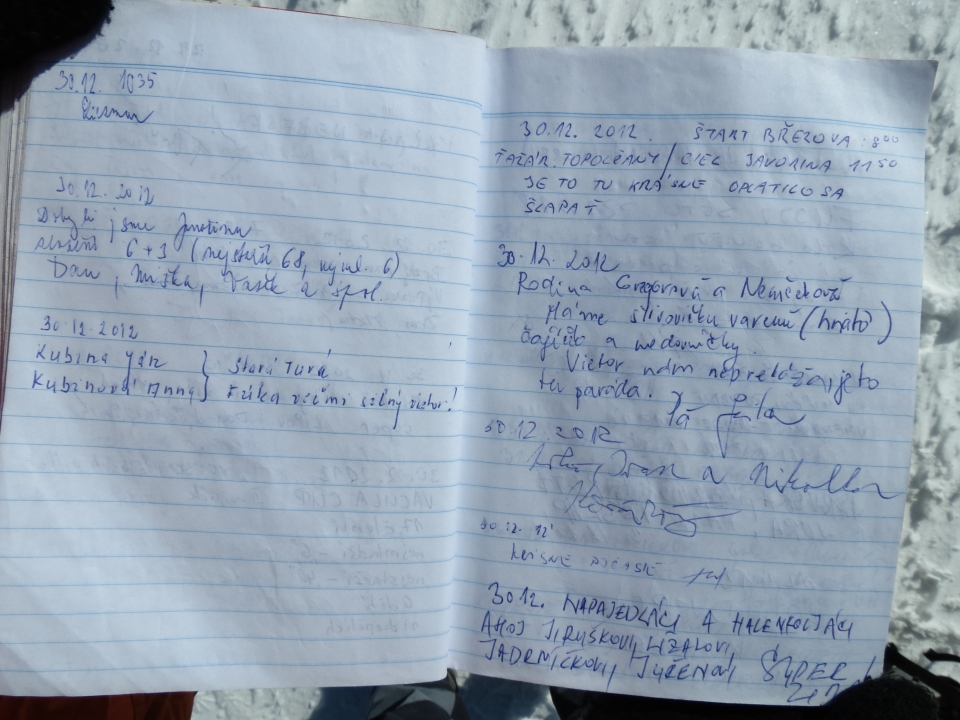 30.12. 1035
30.12. 2012
Dobyli jsme
složení 6+3 (nejstarší 68, nejml. 6)
Dan, Miška, Vašek a spol.
30.12.2012
Kubina Ján } Stará Turá
Kubinová Anna } Fúka veľmi silný vietor!
30.12. 2012. ŠTART BŘEZOVA 8⁰⁰
TOPOĽČANY / CIEĽ JAVORINA 11⁵⁰
JE TO TU KRÁSNE OPLATILO SA
ŠLAPAŤ
30.12. 2012
Rodina Gregorová a Němečková
Máme slivovičku varenú (hriatô)
čajíčko a medovníčky.
Vietor nám neprekáža, je to
tu paráda.
30.12 2012
Ivan a
30.12. 12
POČASIE
30.12. NAPAJEDLÁCI A HALENKOVJÁCI
AHOJ JIRUŠKOVI,
JADRNÍČKOVI, SUPER